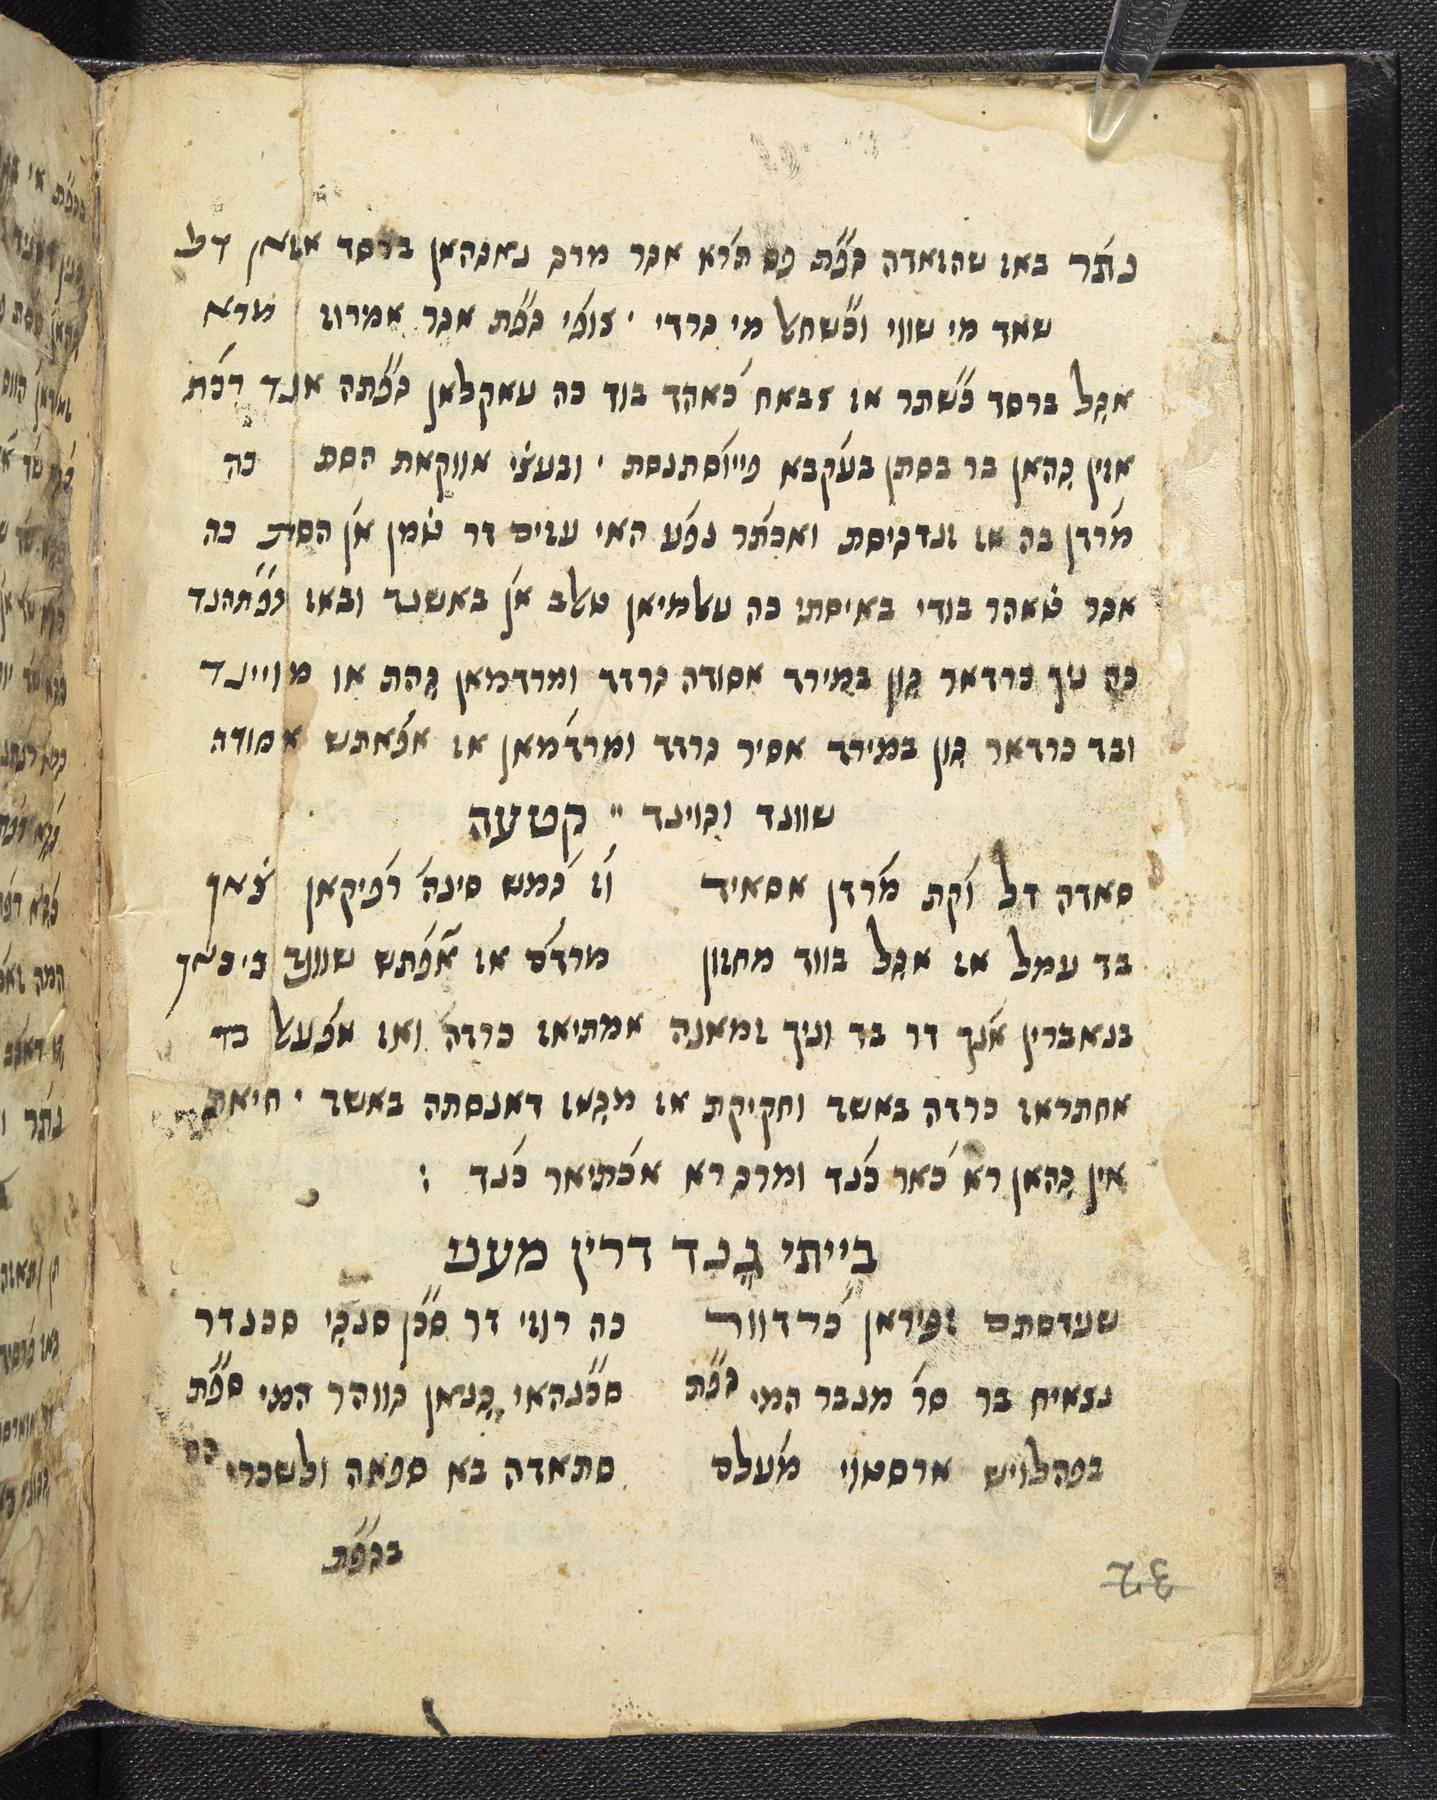 באו שהואדה גפ״ת פס תרא אגר מרג נאגהאן ברסד אואן דל
שאד מי שווי וכ״שחאל מי גרדי ׳ צופי גפ״ת אגר אמרוז מרא
אגל ברסד כ״שתר או צבאח כאהד בוד כה עאקלאן גפ״תה אנד רכ׳ת
אזין גהאן בר בסתן בעקבא פייוסתנסת ׳ ובעצ׳י אווקאת הסת כה
מרדן בה או זנדגיסת ואכתר נפע האי עזים דר צ׳מן אן הסת כה
אגר צ׳אהר בודי באיסתי כה עאלמיאן טאלב אן באשנד ובאו גפ״תהנד
כה ניך כרדאר גון במירד אסודה גרדד ומרדמאן גהת או מויינד
ובד כרדאר גון במירד אסיר גרדד ומרדמאן או אפ׳אתש אסודה
שוונד וגוינד ״ קטעה
סאדה דל וקת מרדן אסאיד וז כ׳מש סינה׳ רפיקאן צ׳אך
בד עמל או אגל בווד מחזון מרדם או אפ׳תש שוונד בי באך
בנאברין אנך דר בד וניך זמאנה אמתיאז כרדה ואז אפ׳עאל בד
אחתראז כרדה באשד וחקיקת או מגאז דאנסתה באשד ׳ חיאת
אין גהאן רא כ׳אר כנד ומרג רא אכ׳תיאר כנד :
בייתי גנד דרין מעני
שנידסתם זפיראן כ׳רדוור כה רוזי דר סכ״ן סנגי סכנדר
נצאיח בר סר מנבר המי גפ״ת סכ״נהאי גנאן גווהר המי ספ״ת
בפהלויש ארסטוי מעלם סתאדה בא ספאה ולשכרי
בגפ״ת
32